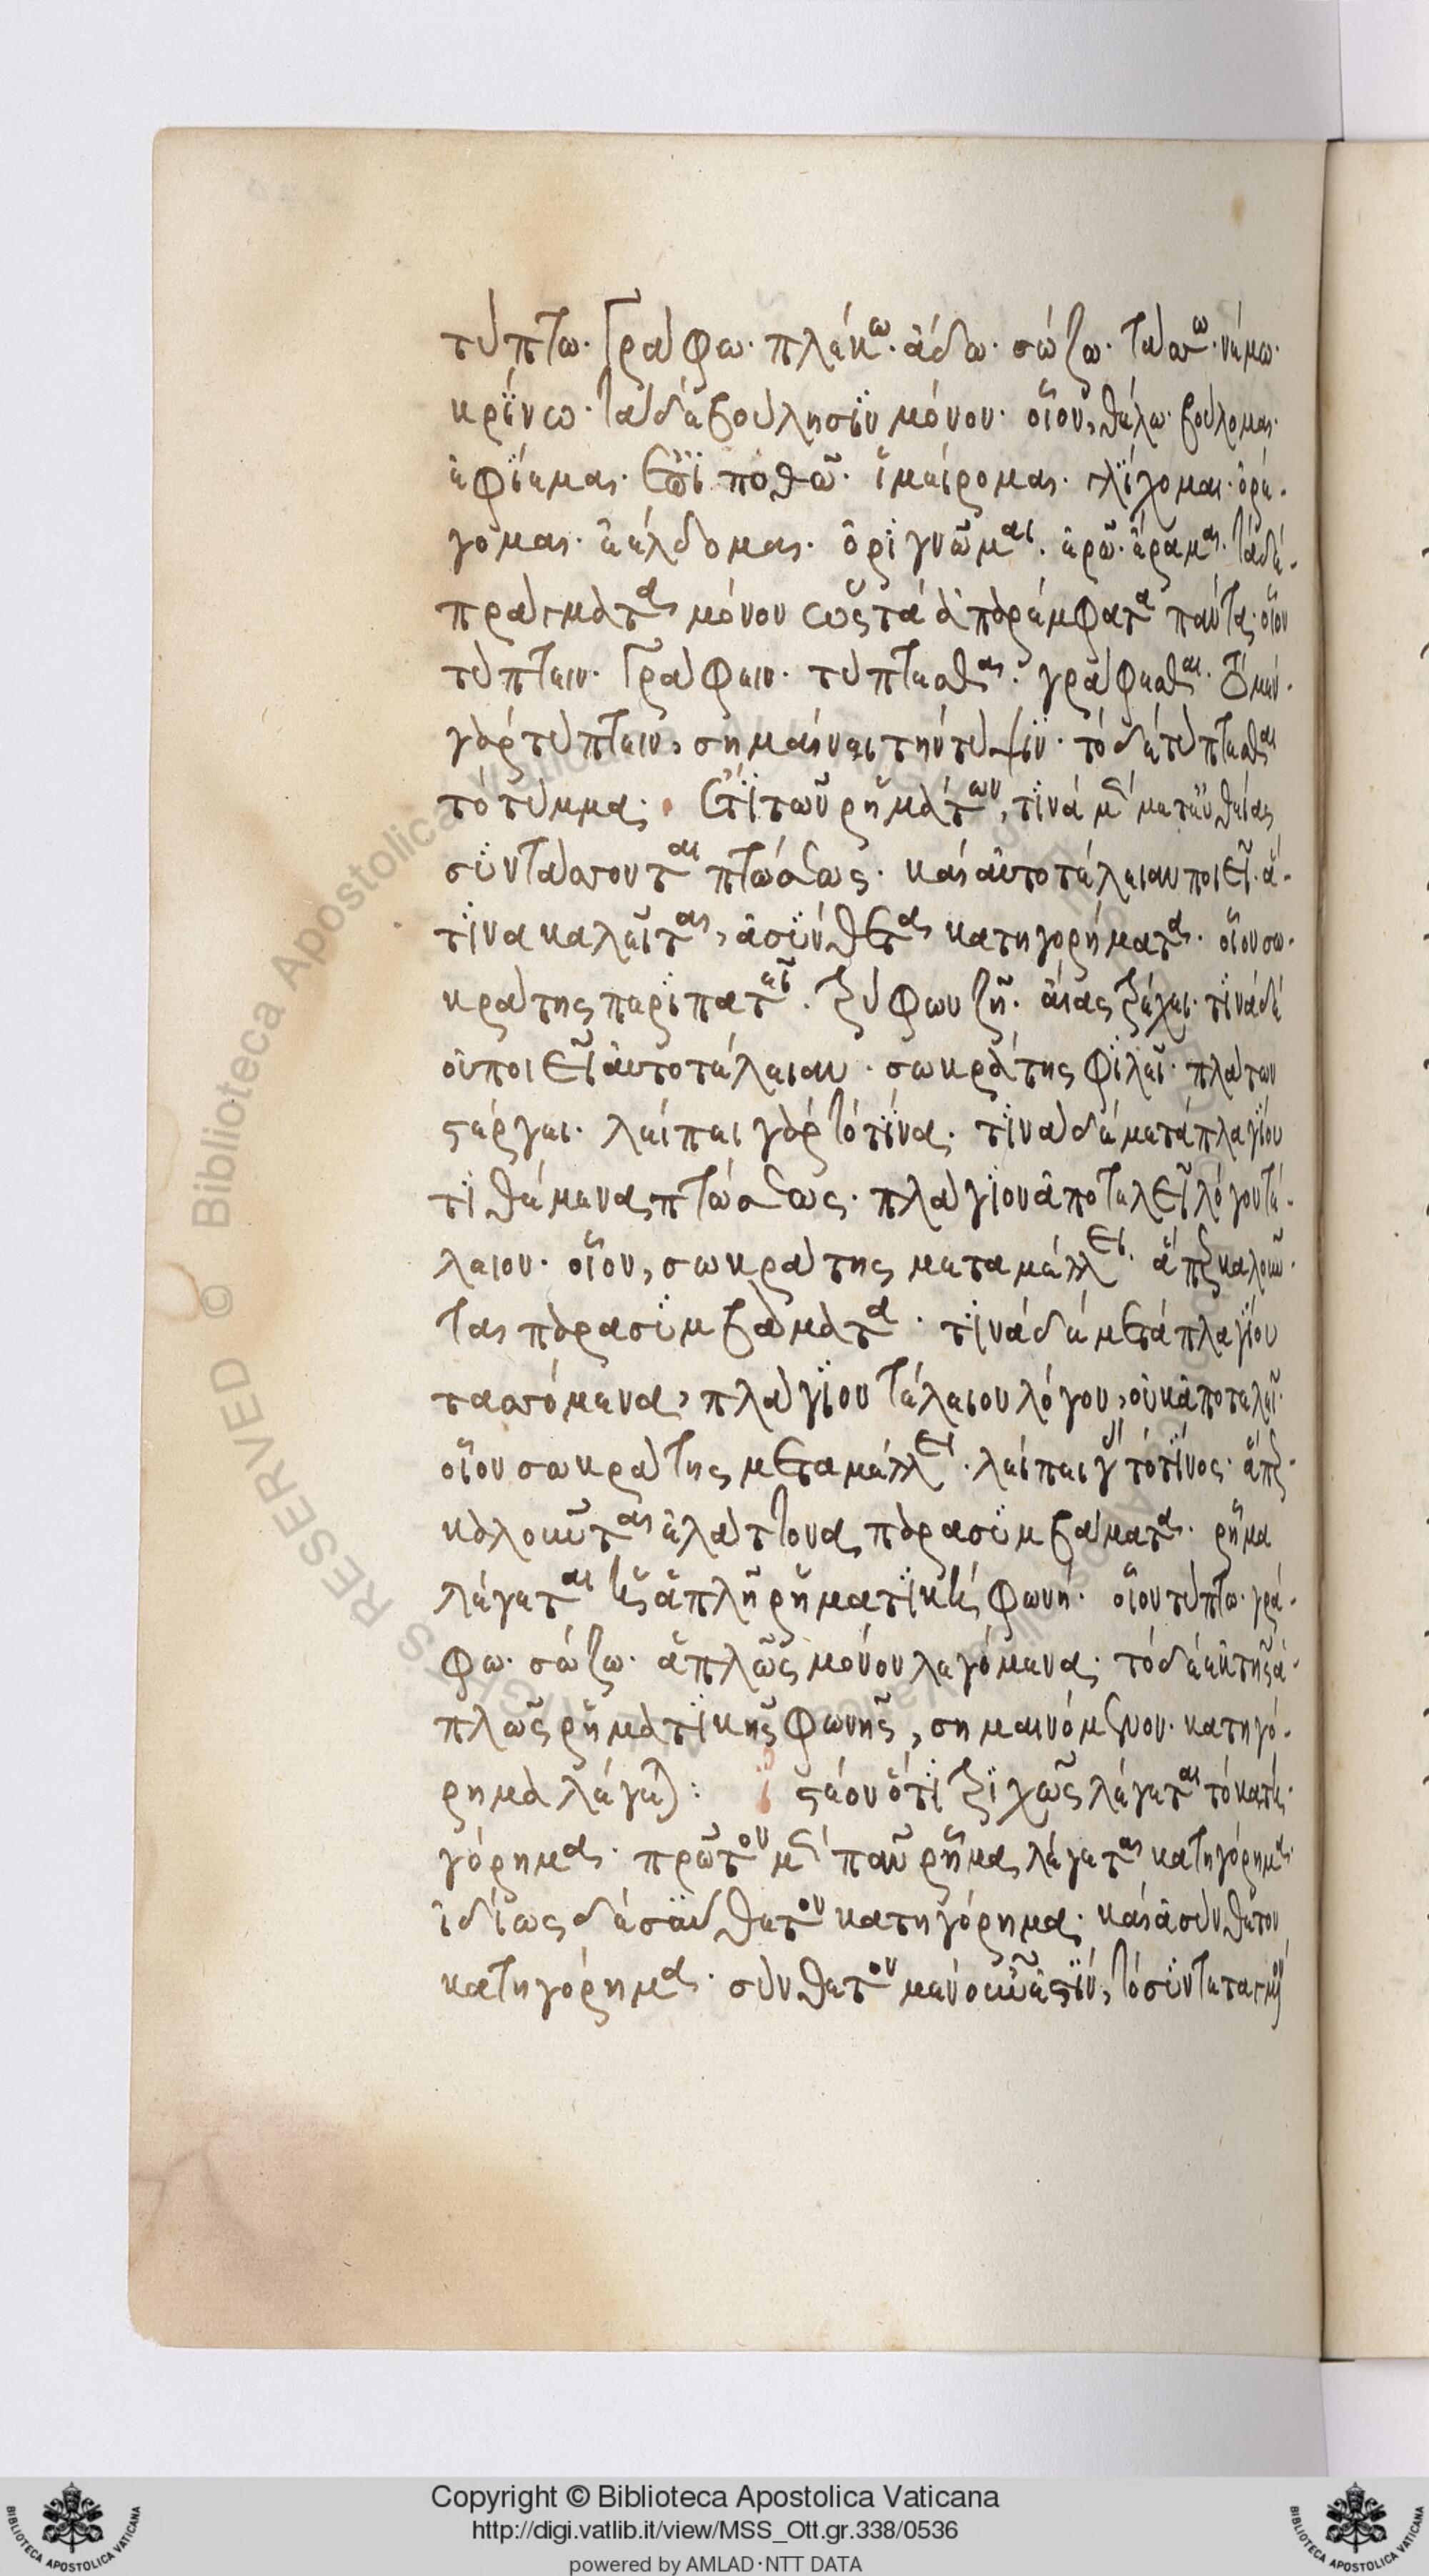 τύπτω· γράφω· πλέκω· ἄδω· σώζω· τάσσω· νέμω·
κρίνω· τὰ δὲ βούλησιν μόνον· οἷον, θέλω· βούλομαι·
ἐφίεμαι· ἐπιποθῶ· ἱμείρομαι· γλίχομαι· ὀρέ-
γομαι· ἐέλδομαι· ὀριγνῶμαι· ἐρῶ· ἔραμαι· τὰ δὲ
πράγματα μόνον ὡς τὰ ἀπαρέμφατα πάντα· οἷον
τύπτειν· γράφειν· τύπτεσθαι· γράφεσθαι· τὸ μὲν
γὰρ τύπτειν, σημαίνει τὴν τύψιν· τὸ δὲ τύπτεσθαι
τὸ τύμμα· ἔτι τῶν ῥημάτων, τινὰ μὲν μετ' εὐθείας
συντάσσονται πτώσεως· καὶ αὐτοτέλειαν ποιεῖ· ἅ-
τινα καλεῖται, ἀσύνθετα κατηγορήματα· οἷον σω-
κράτης περιπατεῖ· ξύφων ζῇ· αἴας τρέχει· τινὰ δὲ
οὐ ποιεῖ αὐτοτέλειαν· σωκράτης φιλεῖ· πλάτων
στέργει· λείπει γὰρ τὸ τίνα· τινὰ δὲ μετὰ πλαγίου
τιθέμενα πτώσεως· πλαγίου ἀποτελεῖ λόγον τέ-
λειον· οἷον, σωκράτης μεταμέλει· ἅπερ καλοῦν-
ται παρασυμβάματα· τινὰ δὲ μετὰ πλαγίου
τασσόμενα, πλαγίου τέλειον λόγον, οὐκ ἀποτελεῖ·
οἷον σωκράτης μεταμέλει· λείπει γὰρ τὸ τίνος· ἅπερ
καλοῦνται ἐλάττονα παρασυμβάματα· ῥῆμα
λέγεται ἡ ἁπλῆ ῥηματικὴ φωνή· οἷον τύπτω· γρά-
φω· σώζω· ἁπλῶς μόνον λεγόμενα· τὸ δὲ ἐκ τῆς ἁ-
πλῶς ῥηματικῆς φωνῆς, σημαινόμενον· κατηγό-
ρημα λέγεται: ἰστέον ὅτι τριχῶς λέγεται τὸ κατη-
γόρημα· πρῶτον μὲν πᾶν ῥῆμα λέγεται κατηγόρημα·
ἰδίως δὲ σύνθετον κατηγόρημα· καὶ ἀσύνθετον
κατηγόρημα· σύνθετον μὲν οὖν ἐστίν, τὸ συντεταγμένον